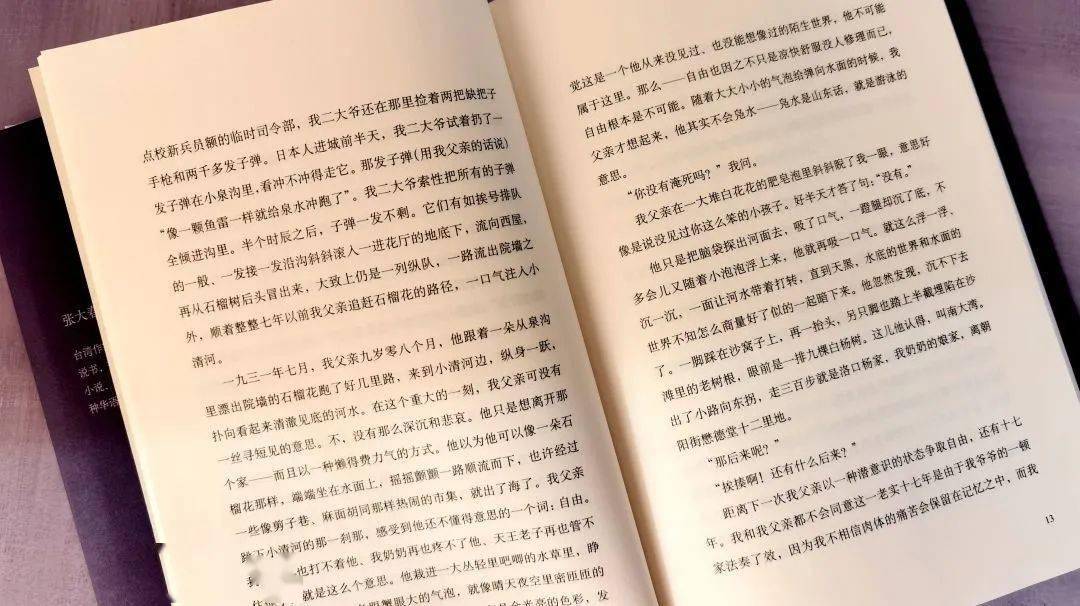 张大春
台湾作
说书，
小说、
种华语
点校新兵员额的临时司令部，我二大爷还在那里捡着两把缺把子
手枪和两千多发子弹。日本人进城前半天，我二大爷试着扔了一
发子弹在小泉沟里，看冲不冲得走它。那发子弹(用我父亲的话说)
“像一颗鱼雷一样就给泉水冲跑了”。我二大爷索性把所有的子弹
全倾进沟里。半个时辰之后，子弹一发不剩。它们有如挨号排队
的一般、一发接一发沿沟斜斜滚入一进花厅的地底下，流向西屋，
再从石榴树后头冒出来，大致上仍是一列纵队，一路流出院墙之
外，顺着整整七年以前我父亲追赶石榴花的路径，一口气注入小
清河。
一九三一年七月，我父亲九岁零八个月，他跟着一朵从泉沟
里漂出院墙的石榴花跑了好几里路，来到小清河边，纵身一跃，
扑向看起来清澈见底的河水。在这个重大的一刻，我父亲可没有
一丝寻短见的意思。不，没有那么深沉和悲哀。他只是想离开那
个家——而且以一种懒得费力气的方式。他以为他可以像一朵石
榴花那样，端端坐在水面上，摇摇颤颤一路顺流而下，也许经过
一些像剪子巷、麻面胡同那样热闹的市集，就出了海了。我父亲
跳下小清河的那一刹那，感受到他还不懂得意思的一个词：自由。
也打不着他、我奶奶再也疼不了他、天王老子再也管不
就是这么个意思。他栽进一大丛轻里吧唧的水草里，睁
蟹眼大的气泡，就像晴天夜空里密匝匝的
金光亮的色彩，发
觉这是一个他从来没见过、也没能想像过的陌生世界，他不可能
属于这里。那么——自由也因之不只是凉快舒服没人修理而已，
自由根本是不可能。随着大大小小的气泡给弹向水面的时候，我
父亲才想起来，他其实不会凫水——凫水是山东话，就是游泳的
意思。
“你没有淹死吗？”我问。
我父亲在一大堆白花花的肥皂泡里斜斜睨了我一眼，意思好
像是说没见过你这么笨的小孩子。好半天才答了句：“没有。”
他只是把脑袋探出河面去，吸了口气，一蹬腿却沉了底，不
多会儿又随着小泡泡浮上来，他就再吸一口气。就这么浮一浮、
沉一沉，一面让河水带着打转，直到天黑，水底的世界和水面的
世界不知怎么商量好了似的一起暗下来。他忽然发现，沉不下去
了。一脚踩在沙窝子上，再一抬头，另只脚也踏上半截埋陷在沙
滩里的老树根，眼前是一排九棵白杨树。这儿他认得，叫南大湾。
出了小路向东拐，走三百步就是洛口杨家，我奶奶的娘家，离朝
阳街懋德堂十二里地。
“那后来呢？”
“挨揍啊！还有什么后来？”
距离下一次我父亲以一种潜意识的状态争取自由，还有十七
年。我和我父亲都不会同意这一老实十七年是由于我爷爷的一顿
家法奏了效，因为我不相信肉体的痛苦会保留在记忆之中，而我
13